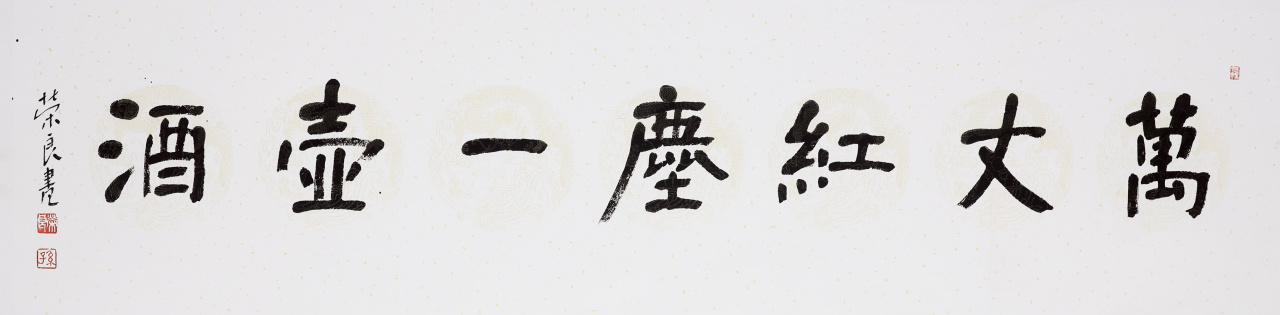 萬丈紅塵一壺酒
荣良書
孫